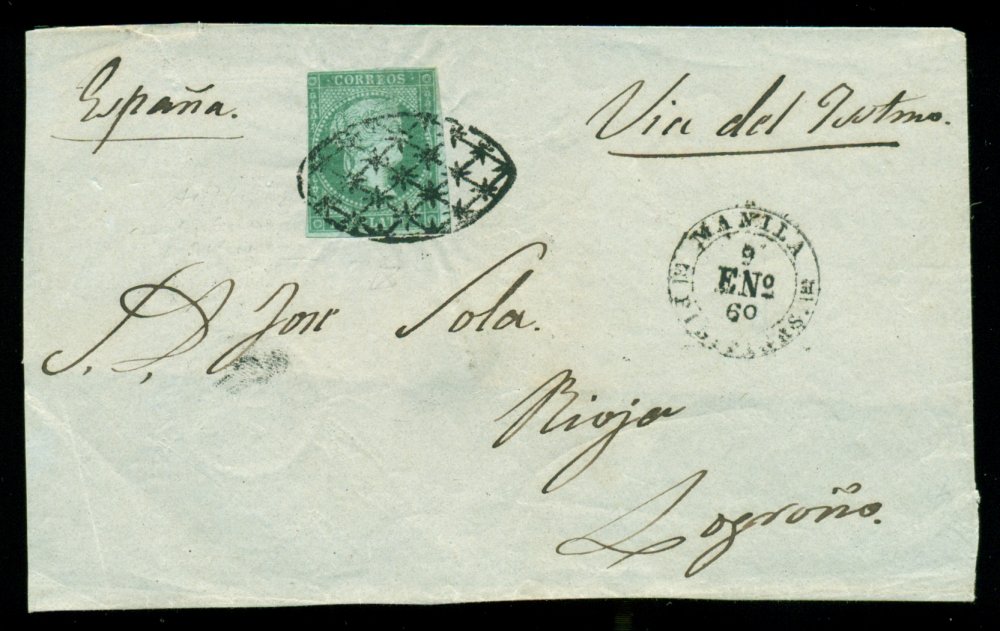 España.
Via del Istmo.
CORREOS
MANILA
9
ENº
60
S. D. Jose Sola.
Rioja
Logroño.